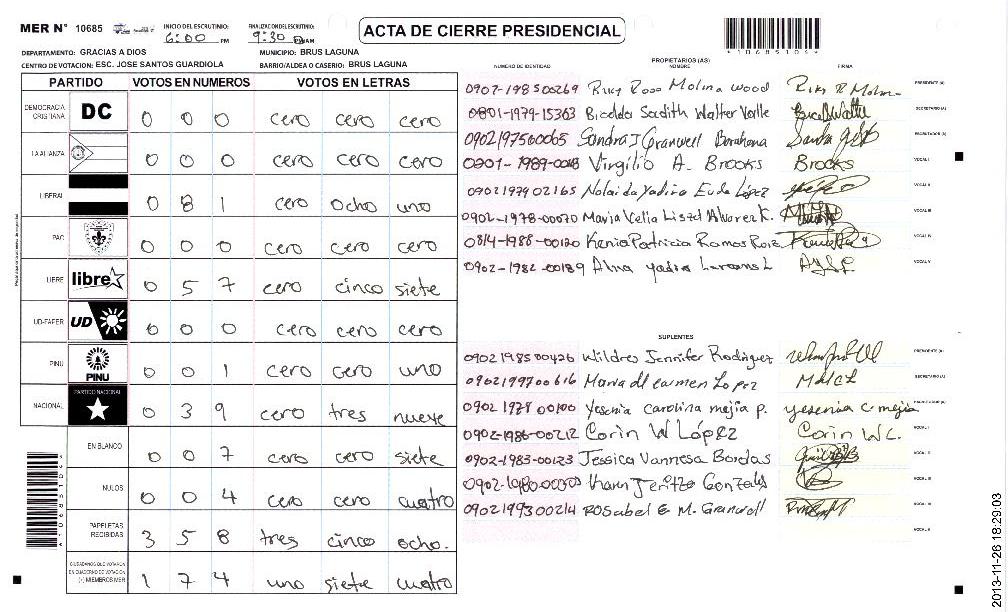 MER N° 10685 INICIO DEL ESCRUTINIO: 6:00 PM FINALIZACION DEL ESCRUTINIO: 9:30 PM
ACTA DE CIERRE PRESIDENCIAL
*10685106*
DEPARTAMENTO: GRACIAS A DIOS MUNICIPIO: BRUS LAGUNA
CENTRO DE VOTACION: ESC. JOSE SANTOS GUARDIOLA BARRIO/ALDEA O CASERIO: BRUS LAGUNA
PARTIDO VOTOS EN NUMEROS VOTOS EN LETRAS
DEMOCRACIA CRISTIANA DC 0 0 0 cero cero cero
LA ALIANZA 0 0 0 cero cero cero
LIBERAL 0 8 1 cero ocho uno
PAC 0 0 0 cero cero cero
LIBRE libre 0 5 7 cero cinco siete
UD-FAPER UD 0 0 0 cero cero cero
PINU PINU 0 0 1 cero cero uno
NACIONAL PARTIDO NACIONAL 0 3 9 cero tres nueve
EN BLANCO 0 0 7 cero cero siete
NULOS 0 0 4 cero cero cuatro
PAPELETAS RECIBIDAS 3 5 8 tres cinco ocho.
CIUDADANOS QUE VOTARON EN CUADERNO DE VOTACION (+) MIEMBROS MER 1 7 4 uno siete cuatro
PROPIETARIOS (AS)
NUMERO DE IDENTIDAD NOMBRE FIRMA
0907-198500269 Rina Rosa Molina Wood PRESIDENTE (A)
0801-1979-15363 Sadith Walter SECRETARIO (A)
0902197500065 Sandra J Granwell Barahona ESCRUTADOR (A)
0901-1989-0048 Virgilio A. Brooks Brooks VOCAL I
0902197902165 Yadira Eude López VOCAL II
0902-1978-00070 Maria Lizet Alvarez K. VOCAL III
0814-1988-00120 Kenia Patricia Ramos VOCAL IV
0902-1982-00189 Alna yadira VOCAL V
SUPLENTES
0902198500426 Wildres Jennifer Rodriguez PRESIDENTE (A)
0902199700616 Maria del carmen Lopez MDLCL SECRETARIO (A)
0902 1978 00100 yesenia carolina mejia p. yesenia c mejia ESCRUTADOR (A)
0902-1986-00212 Corin W López Corin W L. VOCAL I
0902-1983-00123 Jessica Vannesa Bordas VOCAL II
Gonzales VOCAL III
0902199300214 Rosabel E M. Granwell VOCAL IV
VOCAL V
*10685106*
2013-11-26 18:29:03